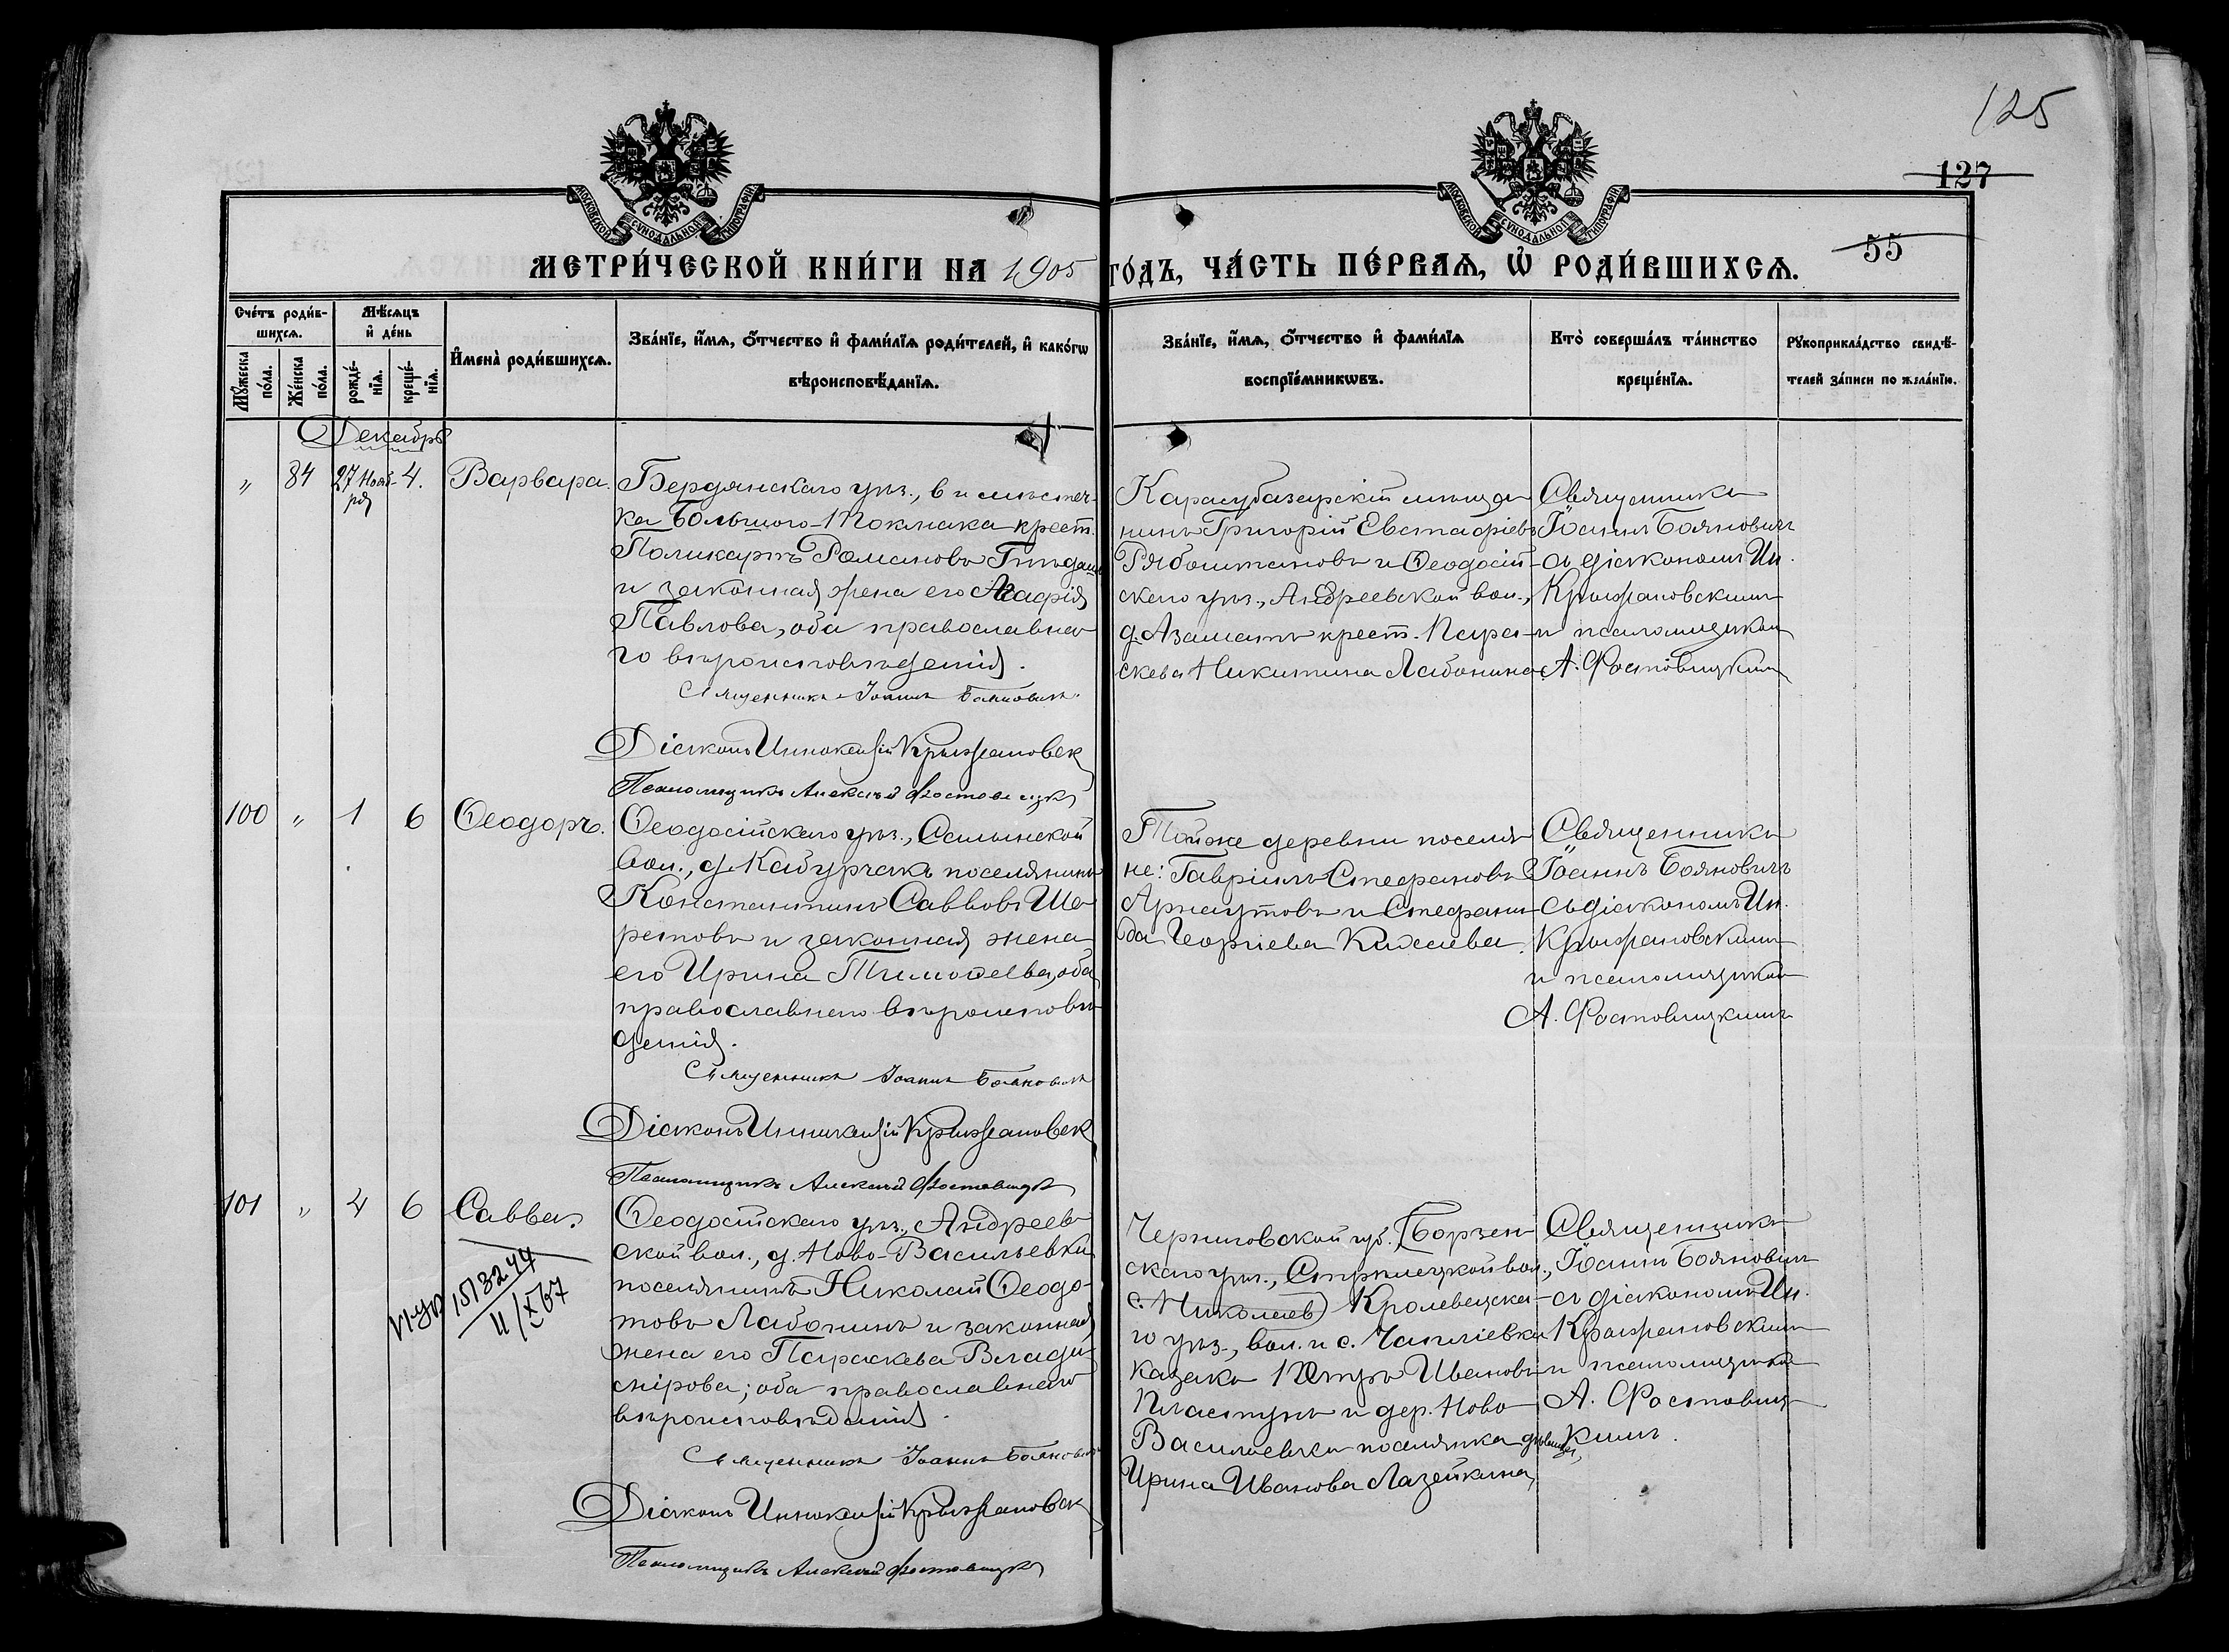 125
127
55
МОСКОВСКОЙ СУНОДАЛЬНОЙ ТИПОГРАФІИ
МОСКОВСКОЙ СУНОДАЛЬНОЙ ТИПОГРАФІИ
МЕТРИ́ЧЕСКОЙ КНИ́ГИ НА 1905 ГО́ДЪ, ЧА́СТЬ ПЕ́РВАѦ, Ѡ҆ РОДИ́ВШИХСѦ.
Сче́тъ роди́в-
шихсѧ.
Мꙋ́жеска по́ла.
Же́нска по́ла.
Мѣ́сѧцъ
и҆ де́нь
рожде́-
нїѧ.
креще́-
нїѧ.
И҆мена̀ роди́вшихсѧ.
Зва́нїе, и҆́мѧ, ѻ҆́тчество и҆ фами́лїѧ роди́телей, и҆ како́гѡ
вѣроисповѣ́данїѧ.
Зва́нїе, и҆́мѧ, ѻ҆́тчество и҆ фами́лїѧ
воспрїе́мникѡвъ.
Кто̀ соверша́лъ та́инство
креще́нїѧ.
Рꙋкоприкла́дство свидѣ́-
телей за́писи по жела́нїю.
Декабрь
„ 84 27 Нояб- 4. Варвара.
ря
Бердянскаго уѣз., в. и мѣстеч-
ка Большого-Токмака крест.
Поликарпъ Романовъ
и законная жена его Агафія
Павлова, оба православна-
го вѣроисповѣденія.
Священникъ Іоаннъ Бояновичъ
Діаконъ Иннокентій Крыжановск
Псаломщикъ Алексѣй Фостовицк
Карасубазарскій мѣща-
нинъ Григорій Евстафіевъ
Рябоштановъ и Ѳеодосій-
скаго уѣз., Андреевской вол.,
д. Азаматъ крест. Пара-
скева Никитина Лабонина
Священникъ
Іоаннъ Бояновичъ
съ діакономъ Ин.
Крыжановскимъ
и псаломщикомъ
А. Фостовицкимъ
100 „ 1 6 Ѳеодоръ.
Ѳеодосійскаго уѣз., Салынской
вол., д. Кабурчакъ поселянинъ
Константинъ Савовъ Ша-
ретовъ и законная жена
его Ирина Тимоѳеева, оба
православнаго вѣроисповѣ-
денія.
Священникъ Іоаннъ Бояновичъ
Діаконъ Иннокентій Крыжановск
Псаломщикъ Алексѣй Фостовицк
Той же деревни поселя-
не: Гавріилъ Стефановъ
Арнаутовъ и Стефани-
да Георгіева Кижаева.
Священникъ
Іоаннъ Бояновичъ
съ діакономъ Ин.
Крыжановскимъ
и псаломщикомъ
А. Фостовицкимъ
101 „ 4 6 Савва.
15/3244
11/X 67
Ѳеодосійскаго уѣз., Андреев-
ской вол., д. Ново-Васильевки
поселянинъ Николай Ѳеодо-
товъ Лабонинъ и законная
жена его Параскева Влади-
мірова; оба православнаго
вѣроисповѣденія.
Священникъ Іоаннъ Бояновичъ
Діаконъ Иннокентій Крыжановск
Псаломщикъ Алексѣй Фостовицк
Черниговской губ. (Борзен-
скаго уѣз., вол.,
с. Николаев) Кролевецка-
го уѣз., вол. и с. Чапліевки
казакъ Петръ Ивановъ
Пластунъ и дер. Ново-
Васильевки поселянка дѣвица,
Ирина Иванова Лазейкина,
Священникъ
Іоаннъ Бояновичъ
съ діакономъ Ин.
Крыжановскимъ
и псаломщикомъ
А. Фостовиц-
кимъ.